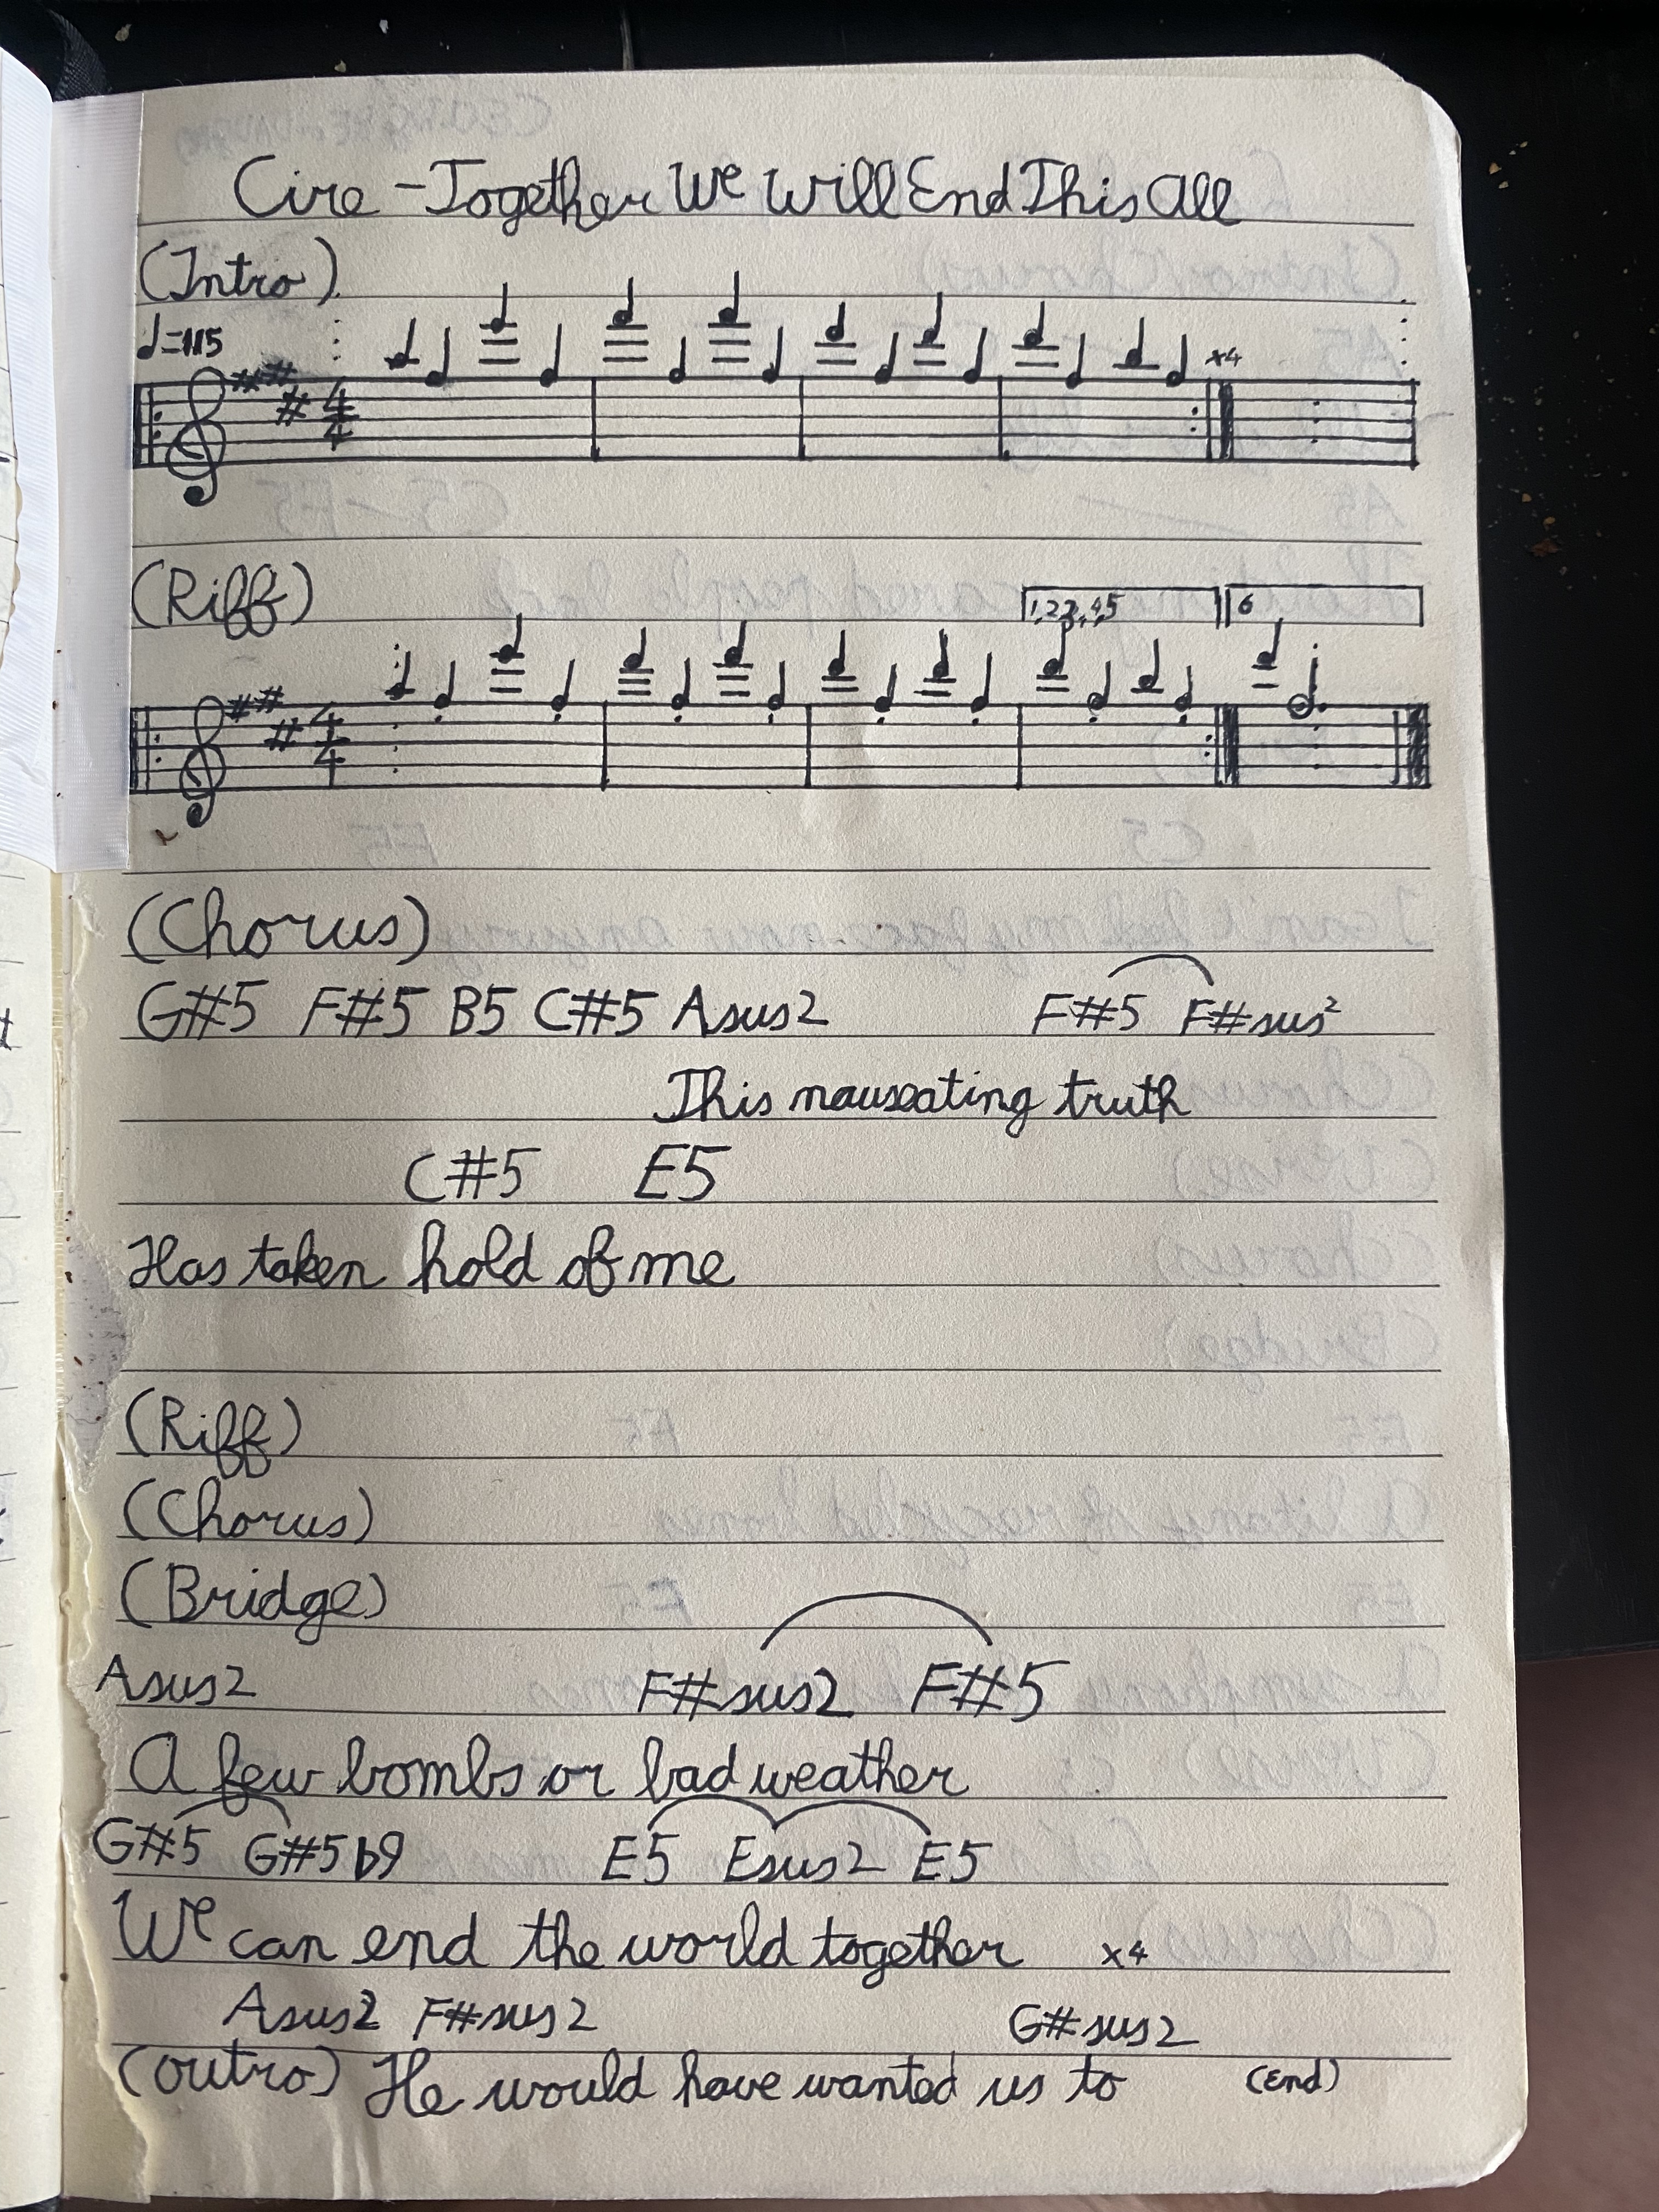 Cire - Together We Will End This All
(Intro)
♩=115
4/4
x4
(Riff)
1,2,3,4,5 6
4/4
(Chorus)
G#5 F#5 B5 C#5 Asus2 F#5 F#sus2
This nauseating truth
C#5 E5
Has taken hold of me
(Riff)
(Chorus)
(Bridge)
Asus2 F#sus2 F#5
A few bombs or bad weather
G#5 G#5b9 E5 Esus2 E5
We can end the world together x4
Asus2 F#sus2 G#sus2
(outro) He would have wanted us to (end)